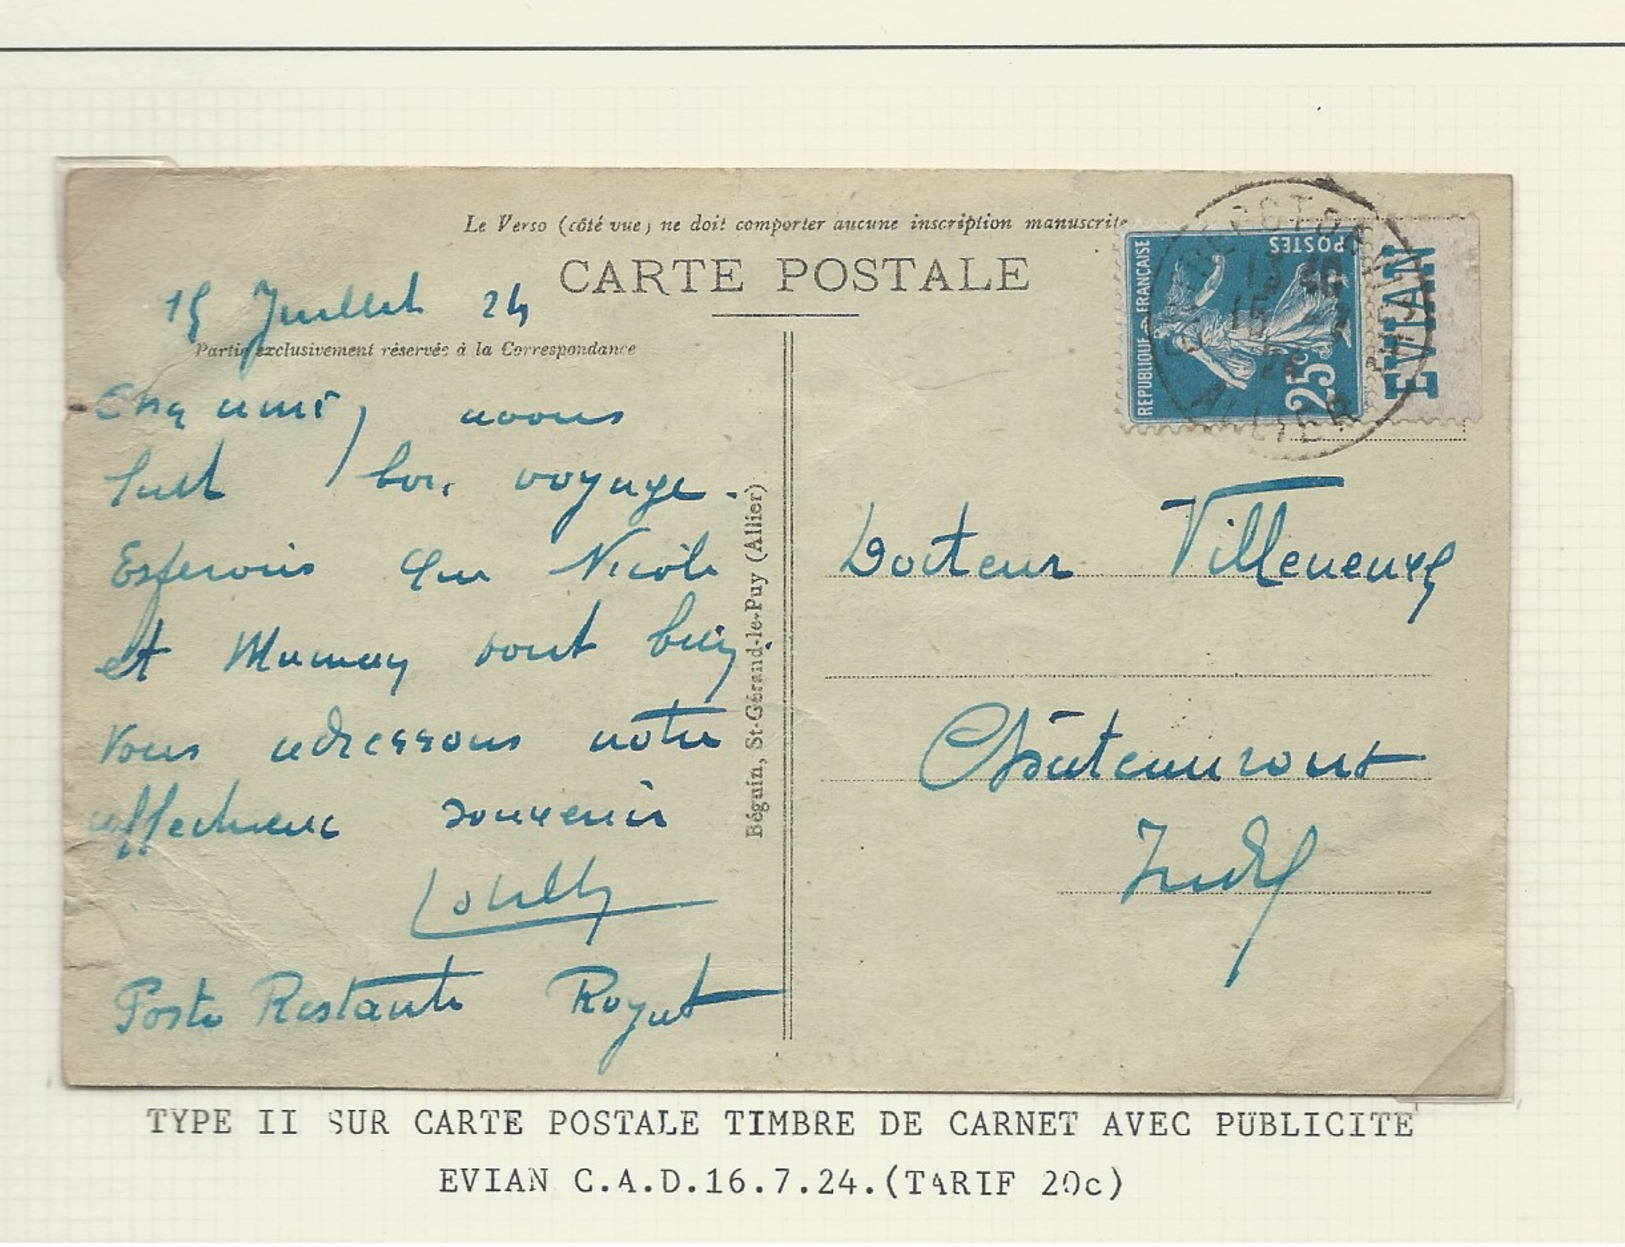 Le Verso (côté vue) ne doit comporter aucune inscription manuscrite
CARTE POSTALE
15 Juillet 24
Partie exclusivement réservée à la Correspondance
avons
fait bon voyage.
Esperons que Nicole
et Maman sont bien.
Vous adressons notre
affectueux souvenir
Poste Restante Royat
Béguin, St-Gérand-le-Puy (Allier)
REPUBLIQUE FRANÇAISE
POSTES
25c
EVIAN
ALLIER
Docteur Villeneuve
Châteauroux
Indre
TYPE II SUR CARTE POSTALE TIMBRE DE CARNET AVEC PUBLICITE
EVIAN C.A.D.16.7.24.(TARIF 20c)